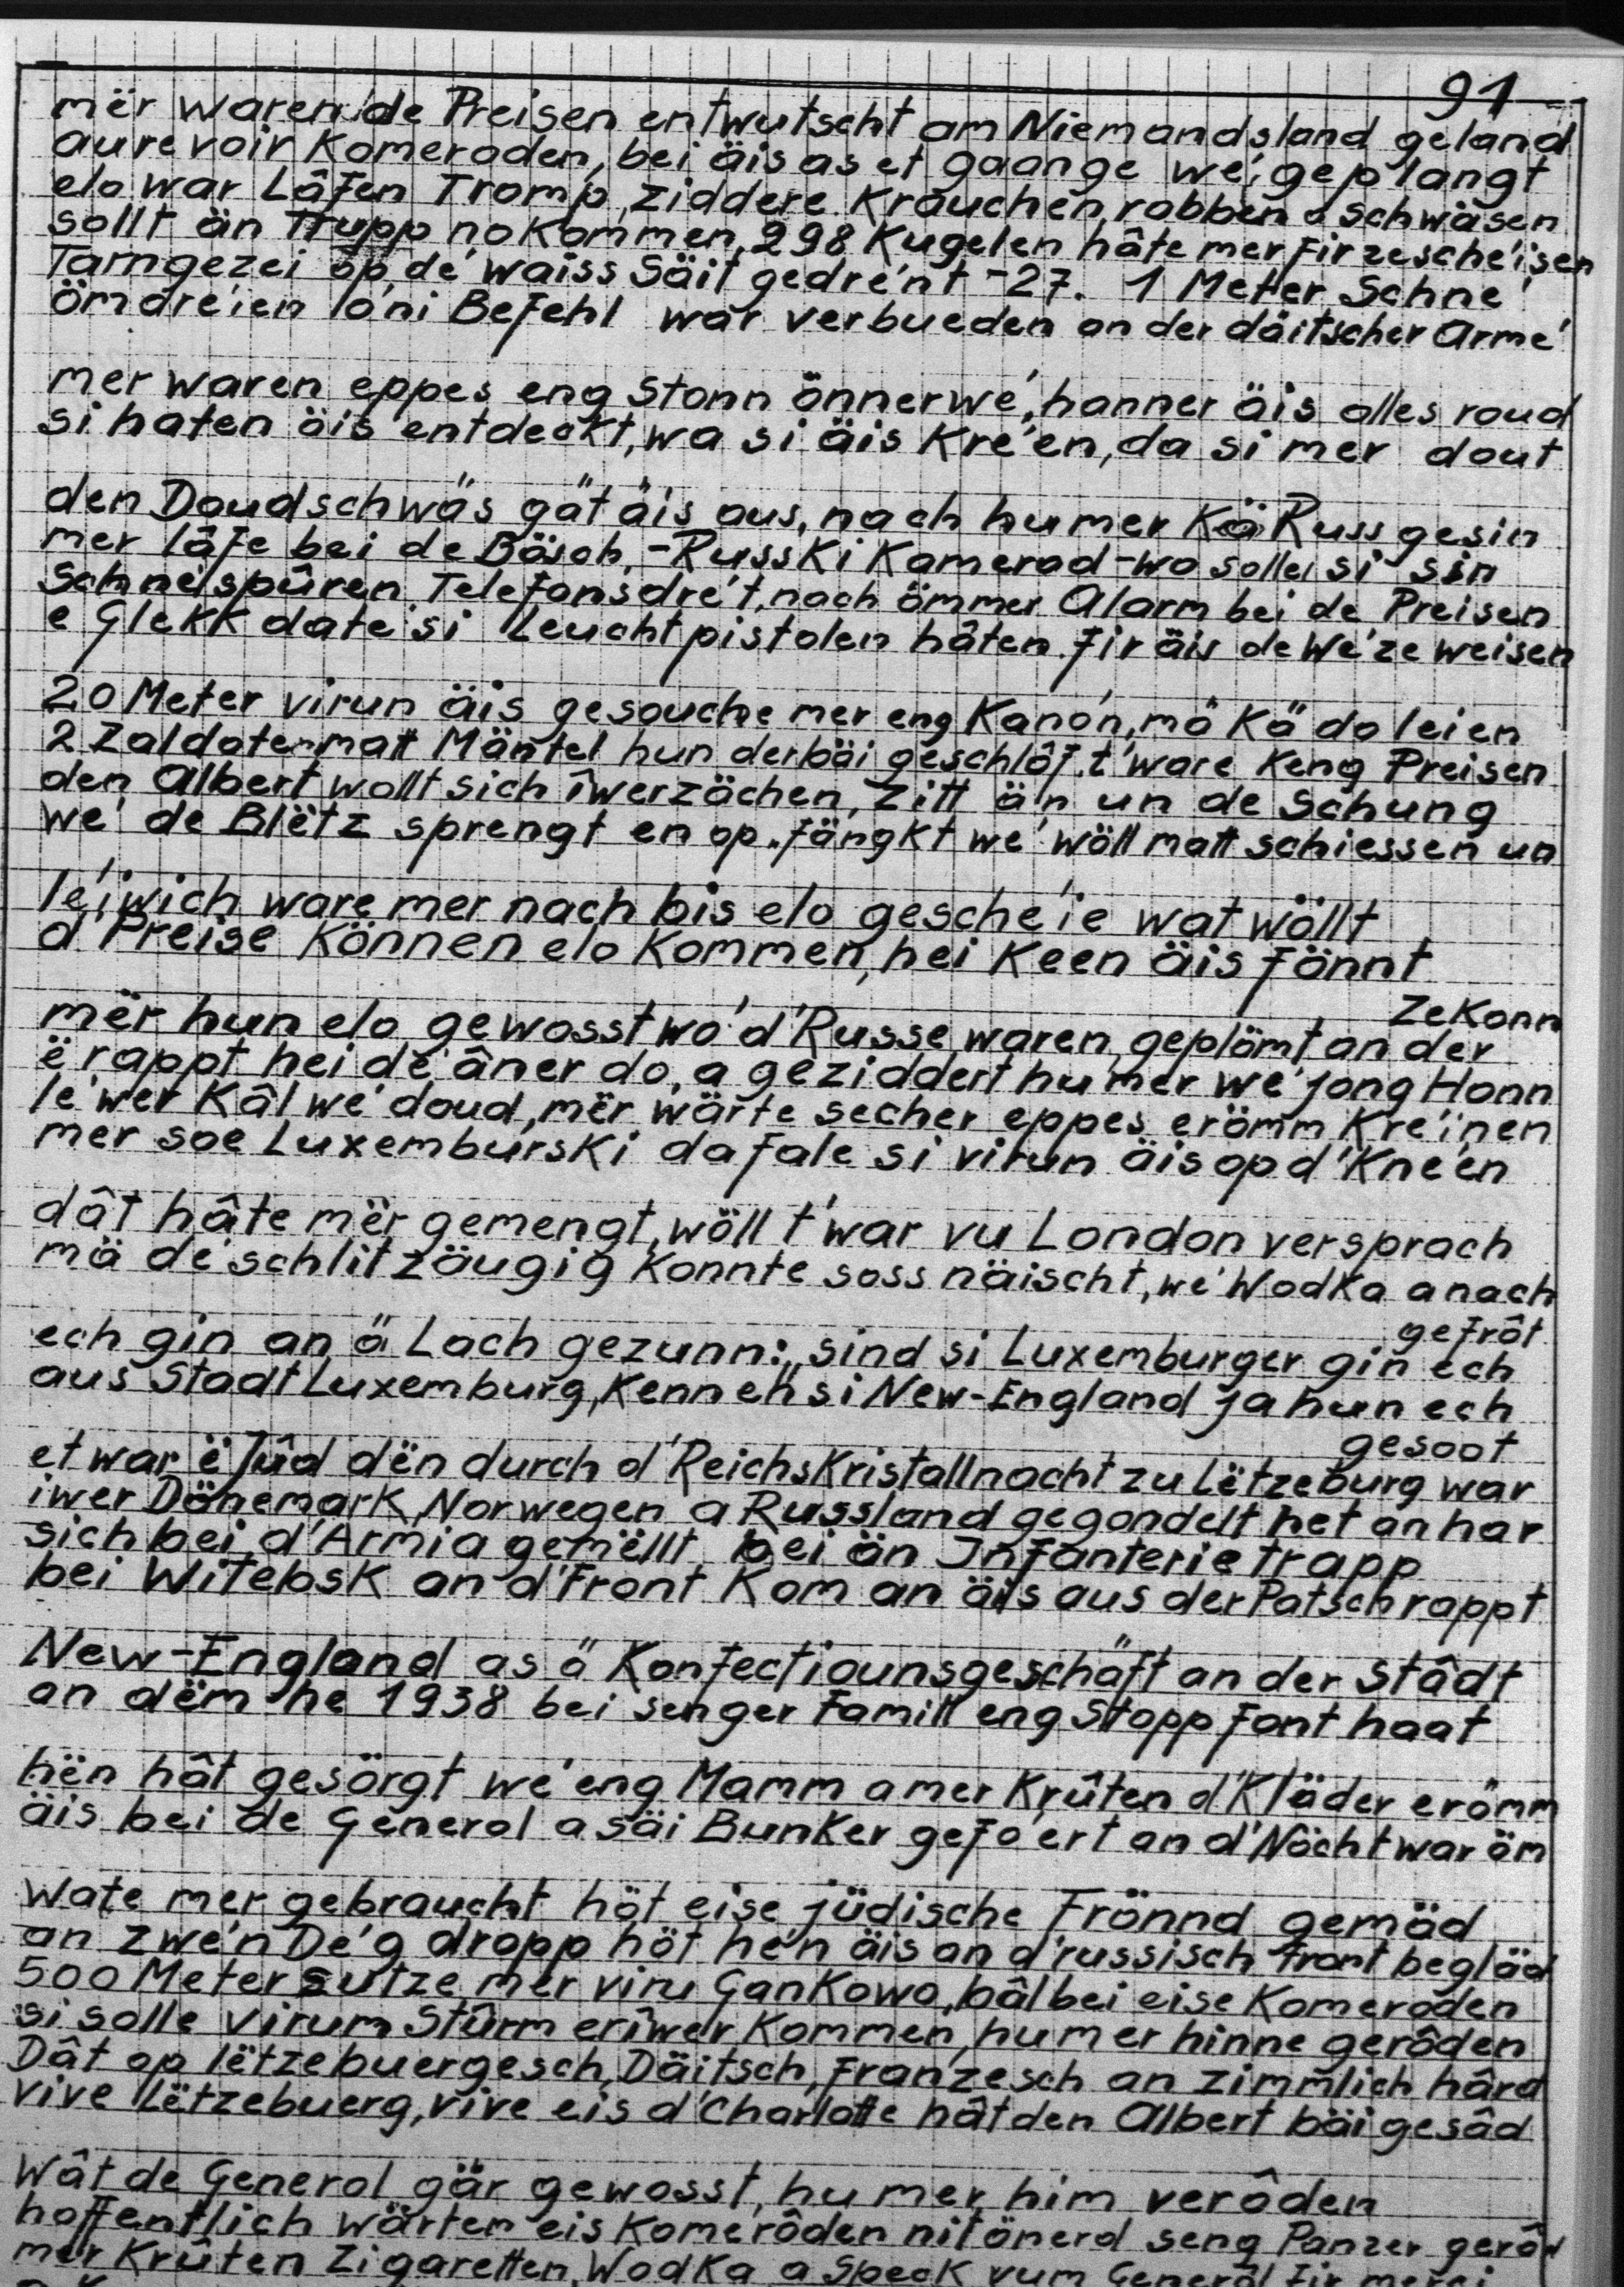 91
mër waren de Preisen entwutscht am Niemandsland geland
aurevoir Komeroden, bei äis as et gaange wéi geplangt
elo war Lâfen Tromp, ziddere Krauchen, robben a Schwäsen
sollt än Trupp noKommen, 298 Kugelen hâte mer fir zeschéisen
Tarngezei op dé waiss Säit gedrént -27. 1 Meter Schné
ömdréien ióni Befehl war verbueden an der däitscher Armé
mer waren eppes eng Stonn önnerwé, hanner äis alles roud
si haten äis entdeckt, wa si äis Kréen, da si mer dout
den Doudschwäs gät äis aus, nach humer Kä Russ gesin
mer lâfe bei de Bösch, -RussKi Kamerad - wo sollei si sin
Schnéspûren, Telefonsdrét, nach ömmer Alarm bei de Preisen
e GleKK date si Leuchtpistolen hâten fir äis de Wé ze weisen
20 Meter virun äis gesouche mer eng Kanón, mä Kä do leien
2 Zaldoten matt Mäntel hun derbäi geschlôf, t'ware Keng Preisen
den Albert wollt sich îwerzächen, zitt än un de Schung
wé de Blëtz sprengt en op, fängkt wé wöll matt schiessen un
léiwich ware mer nach bis elo geschéie wat wöllt
d'Preise Können elo Kommen, hei Keen äis fönnt
mër hun elo gewosst wó d'Russe waren, geplömt an der ZeKonn
ë rappt hei dé âner do, a geziddert humer wé jong Honn
léwer Kâl wé doud, mër wärte secher eppes erömm Kréinen
mer soe LuxemburSKi da fale si virun äis op d'Knéen
dât hâte mër gemengt, wöll t'war vu London versprach
mä dé schlitzäugig Konnte soss näischt, wé WodKa a nach
ech gin an ä Lach gezunn: „sind si Luxemburger gin ech gefrôt
aus Stadt Luxemburg, Kennen si New-England ja hun ech gesoot
et war ë Jûd dën durch d'ReichsKristallnacht zu Lëtzeburg war
iwer DänemarK, Norwegen a Russland gegondelt het an har
sich bei d'Armia gemëllt, bei än Infanterietrapp
bei WitebsK an d'Front Kom an äis aus der Patsch rappt
New-England as ä Konfectiounsgeschäft an der Stâdt
an dëm he 1938 bei senger Famill eng Stopp font haat
hën hât gesörgt wé eng Mamm a mer Krûten d'Kläder erömm
äis bei de General a säi BunKer gefo'ert an d'Nöcht war öm
wate mer gebraucht höt eise jüdische Frönnd gemäd
an zwén Dég dropp höt hén äis an d'russisch Front begläd
500 Meter sutze mer viru GanKowo, bâl bei eise Komeroden
si solle virum Stûrm erîwer Kommen, humer hinne gerôden
Dât op lëtzebuergesch, Däitsch, Franzesch an zimmlich hârd
vive Lëtzebuerg, vive eis d'Charlotte hât den Albert bäi gesâd
Wât de General gär gewosst, hu mer him verôden
hoffentlich wärten eis Komerôden nit önerd seng Panzer gerôd
mer Krûten Zigaretten, WodKa a SpecK vum General fir merci